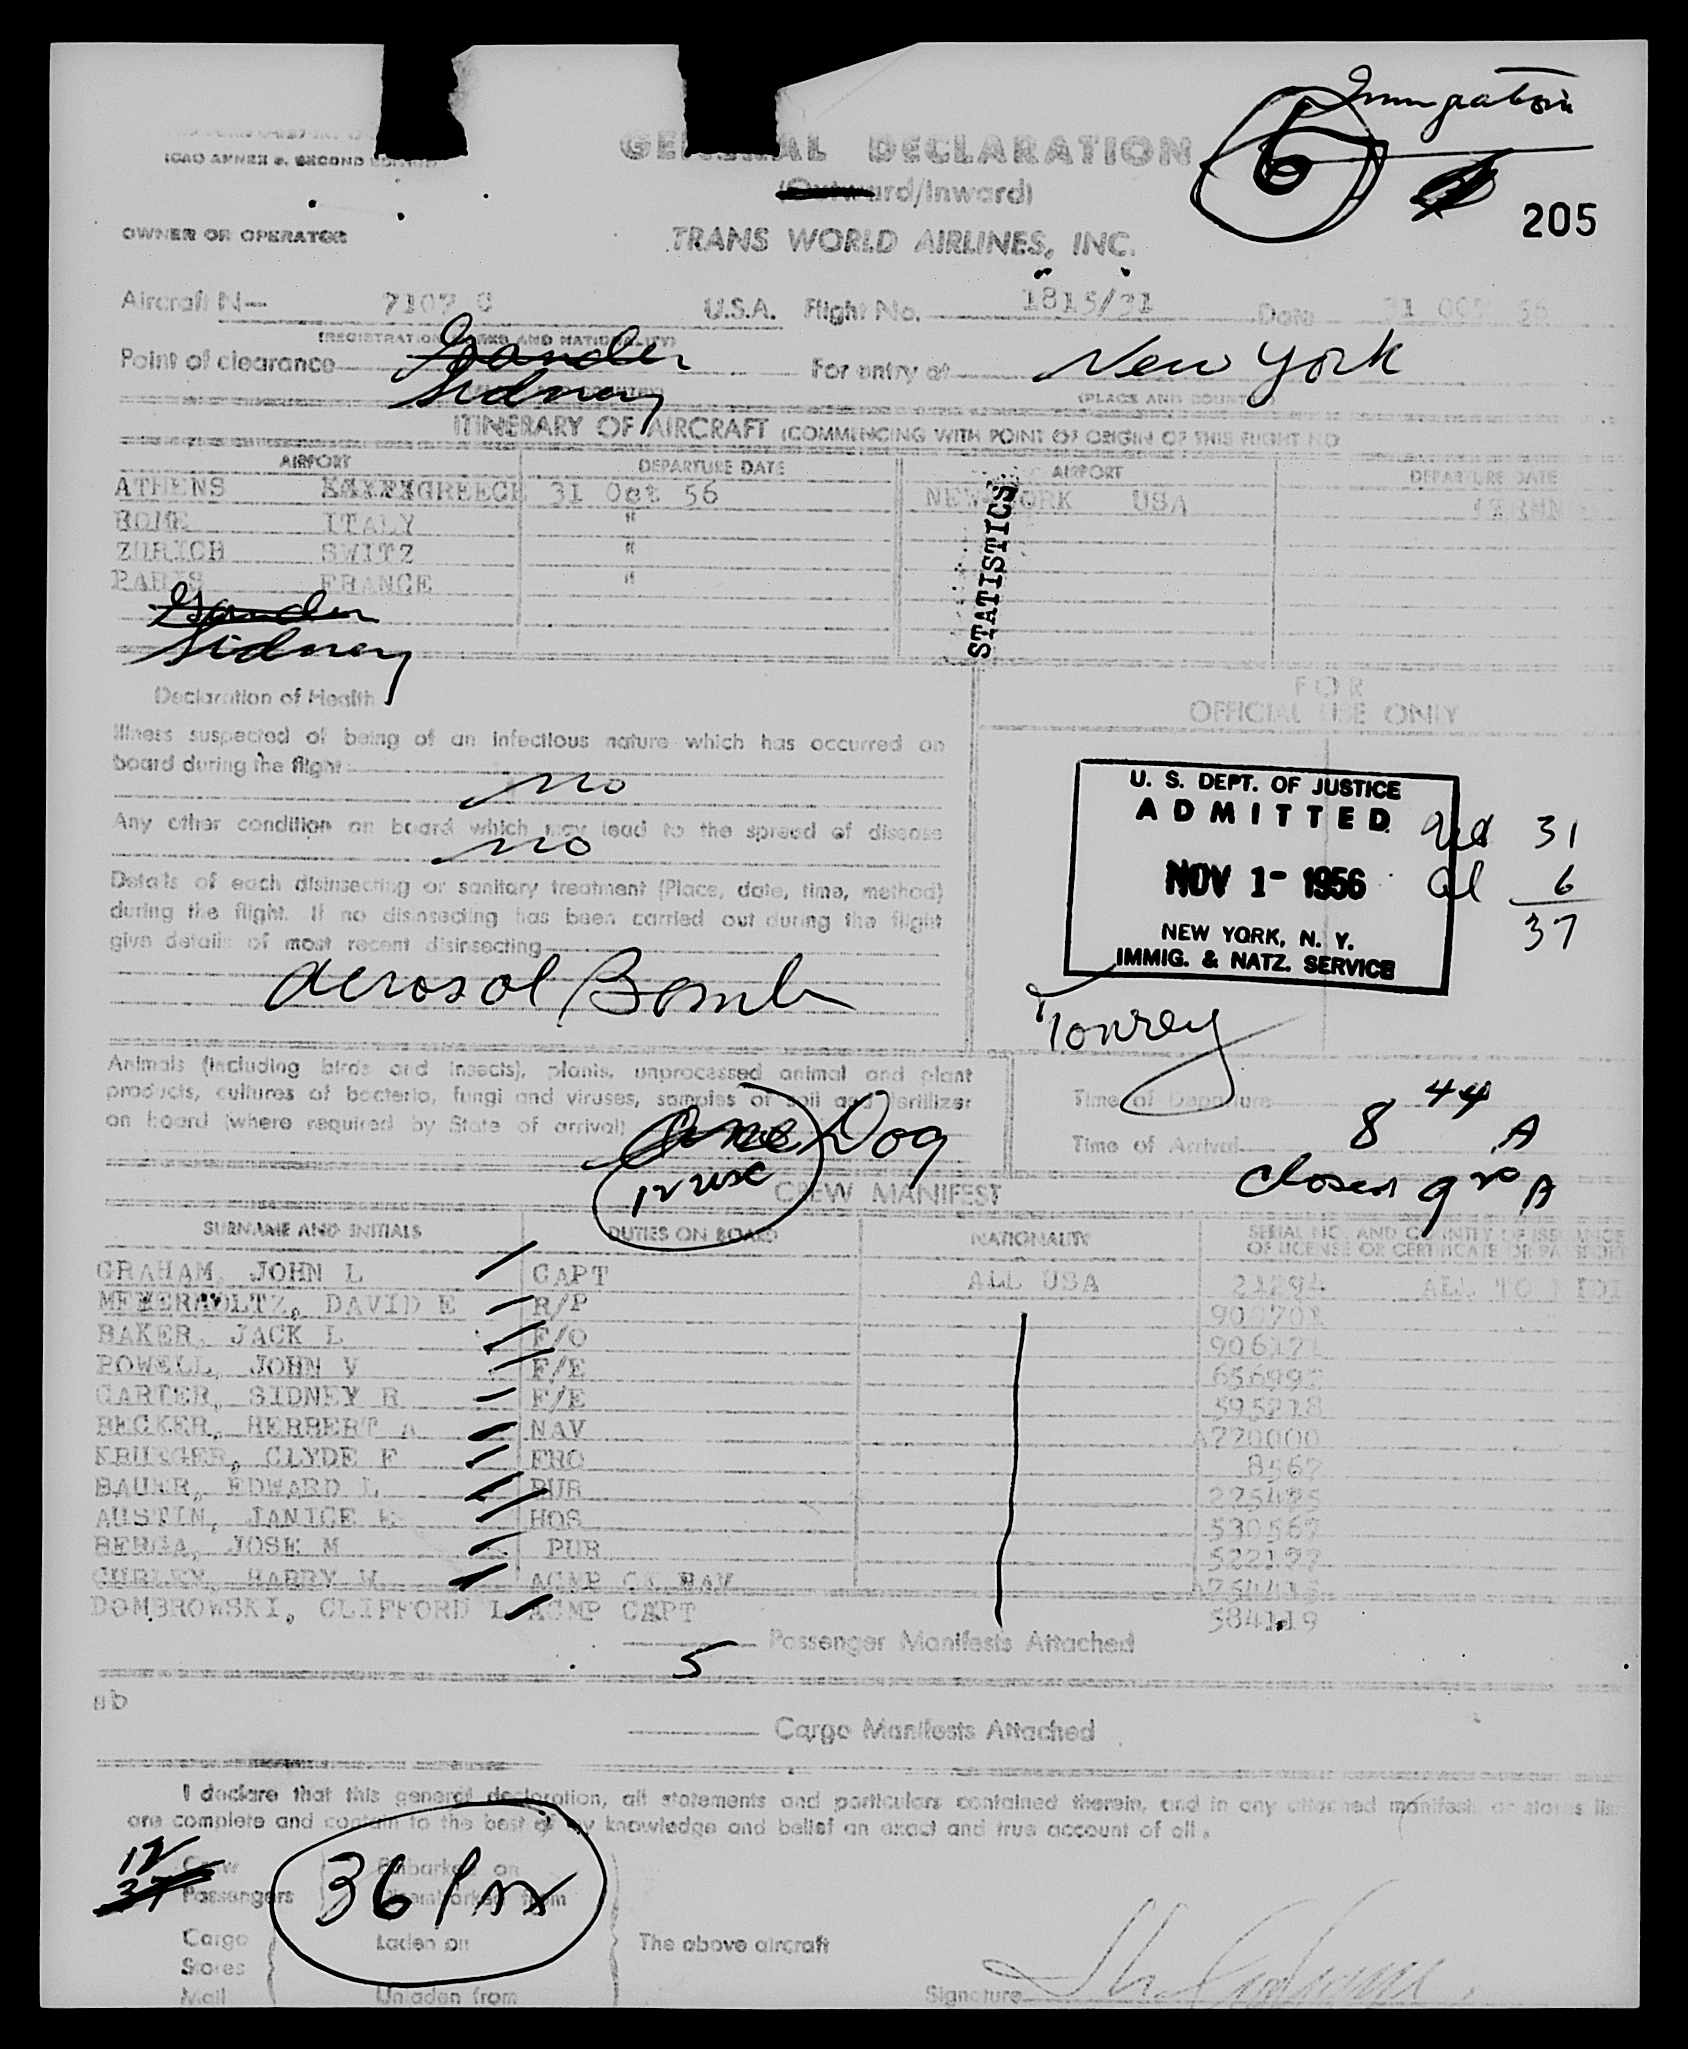 Immigration
6
ICAO ANNEX 9, SECOND EDITION
GENERAL DECLARATION
(Outward/Inward)
205
OWNER OR OPERATOR
TRANS WORLD AIRLINES, INC.
Aircraft N— 7107 C U.S.A. Flight No. 1815/31 Date 31 OCT 56
(REGISTRATION MARKS AND NATIONALITY)
Point of clearance Gander For entry at New York
Sidney
(PLACE AND COUNTRY) (PLACE AND COUNTRY)
ITINERARY OF AIRCRAFT (COMMENCING WITH POINT OF ORIGIN OF THIS FLIGHT NO
AIRPORT DEPARTURE DATE AIRPORT DEPARTURE DATE
ATHENS GREECE 31 Oct 56 NEW YORK USA
ROME ITALY "
ZURICH SWITZ "
PARIS FRANCE "
Gander
Sidney
STATISTICS
Declaration of Health
FOR
OFFICIAL USE ONLY
Illness suspected of being of an infectious nature which has occurred on
board during the flight
no
Any other condition on board which may lead to the spread of disease
no
Details of each disinsecting or sanitary treatment (Place, date, time, method)
during the flight. If no disinsecting has been carried out during the flight
give details of most recent disinsecting
Aerosol Bomb
U. S. DEPT. OF JUSTICE
ADMITTED
NOV 1- 1956
NEW YORK, N. Y.
IMMIG. & NATZ. SERVICE
31
al 6
37
Animals (including birds and insects), plants, unprocessed animal and plant
products, cultures of bacteria, fungi and viruses, samples of soil and fertilizer
on board (where required by State of arrival)
One Dog
12 usc
Time of Departure
Time of Arrival 8 44 A
Closed 9 20 A
CREW MANIFEST
SURNAME AND INITIALS DUTIES ON BOARD NATIONALITY SERIAL NO. AND COUNTRY OF ISSUANCE
OF LICENSE OR CERTIFICATE OR PASSPORT
GRAHAM, JOHN L CAPT ALL USA 21294
DAVID E R/P 900701
BAKER, JACK L F/O 906171
POWELL, JOHN V F/E 656997
CARTER, SIDNEY R F/E 595218
BECKER, HERBERT A NAV A220000
KRUEGER, CLYDE F FRO 8567
BAUER, EDWARD L PUR 225485
AUSTIN, JANICE E HOS 530567
BERGA, JOSE M PUR 522197
CURLEY, HARRY W ACMP CK NAV
DOMBROWSKI, CLIFFORD L ACMP CAPT 584119
5 Passenger Manifests Attached
Cargo Manifests Attached
I declare that this general declaration, all statements and particulars contained therein, and in any attached manifests or stores lists
are complete and contain to the best of my knowledge and belief an exact and true account of all.
12 Crew Embarked on
37 Passengers Disembarked from
36 Pax
Cargo Laden on The above aircraft
Stores
Mail Unladen from Signature